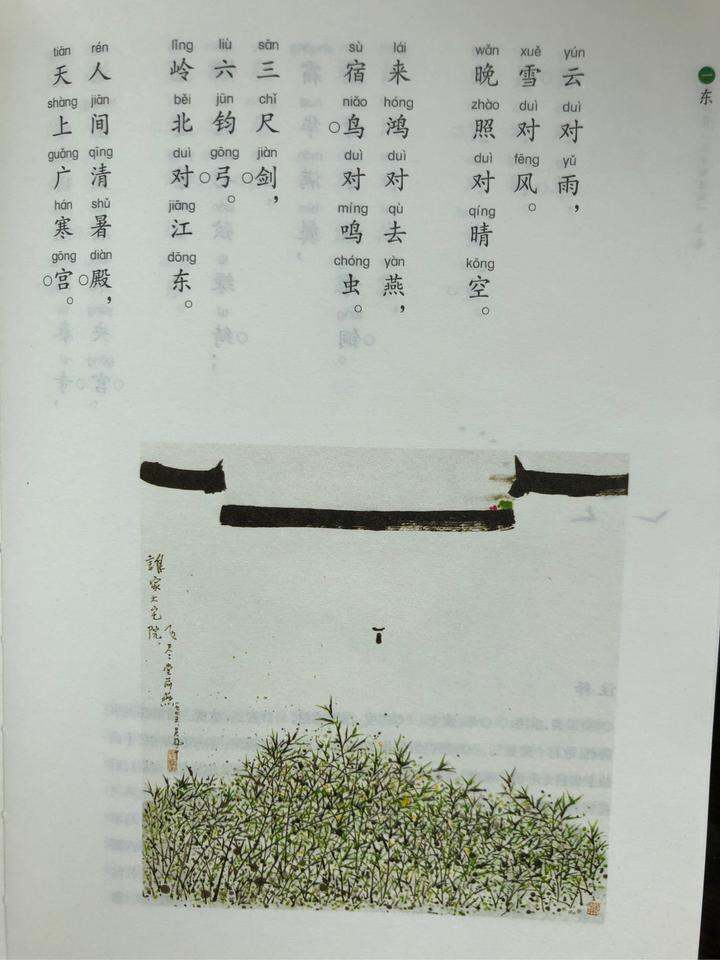 一东
yún duì yǔ
云对雨，
xuě duì fēng
雪对风。
wǎn zhào duì qíng kōng
晚照对晴空。
lái hóng duì qù yàn
来鸿对去燕，
sù niǎo duì míng chóng
宿鸟对鸣虫。
sān chǐ jiàn
三尺剑，
liù jūn gōng
六钧弓。
lǐng běi duì jiāng dōng
岭北对江东。
rén jiān qīng shǔ diàn
人间清暑殿，
tiān shàng guǎng hán gōng
天上广寒宫。
誰家大宅院